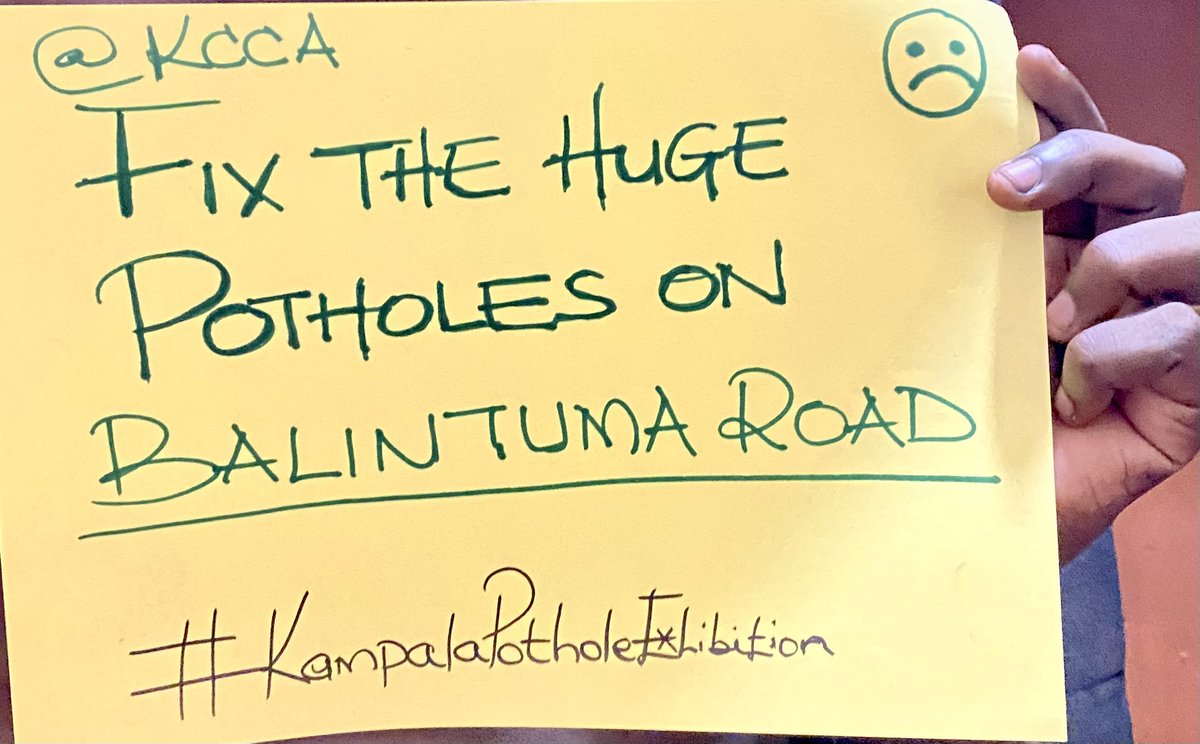 @KCCA
FIX THE HUGE
POTHOLES ON
BALINTUMA ROAD
#KampalaPotholeExhibition